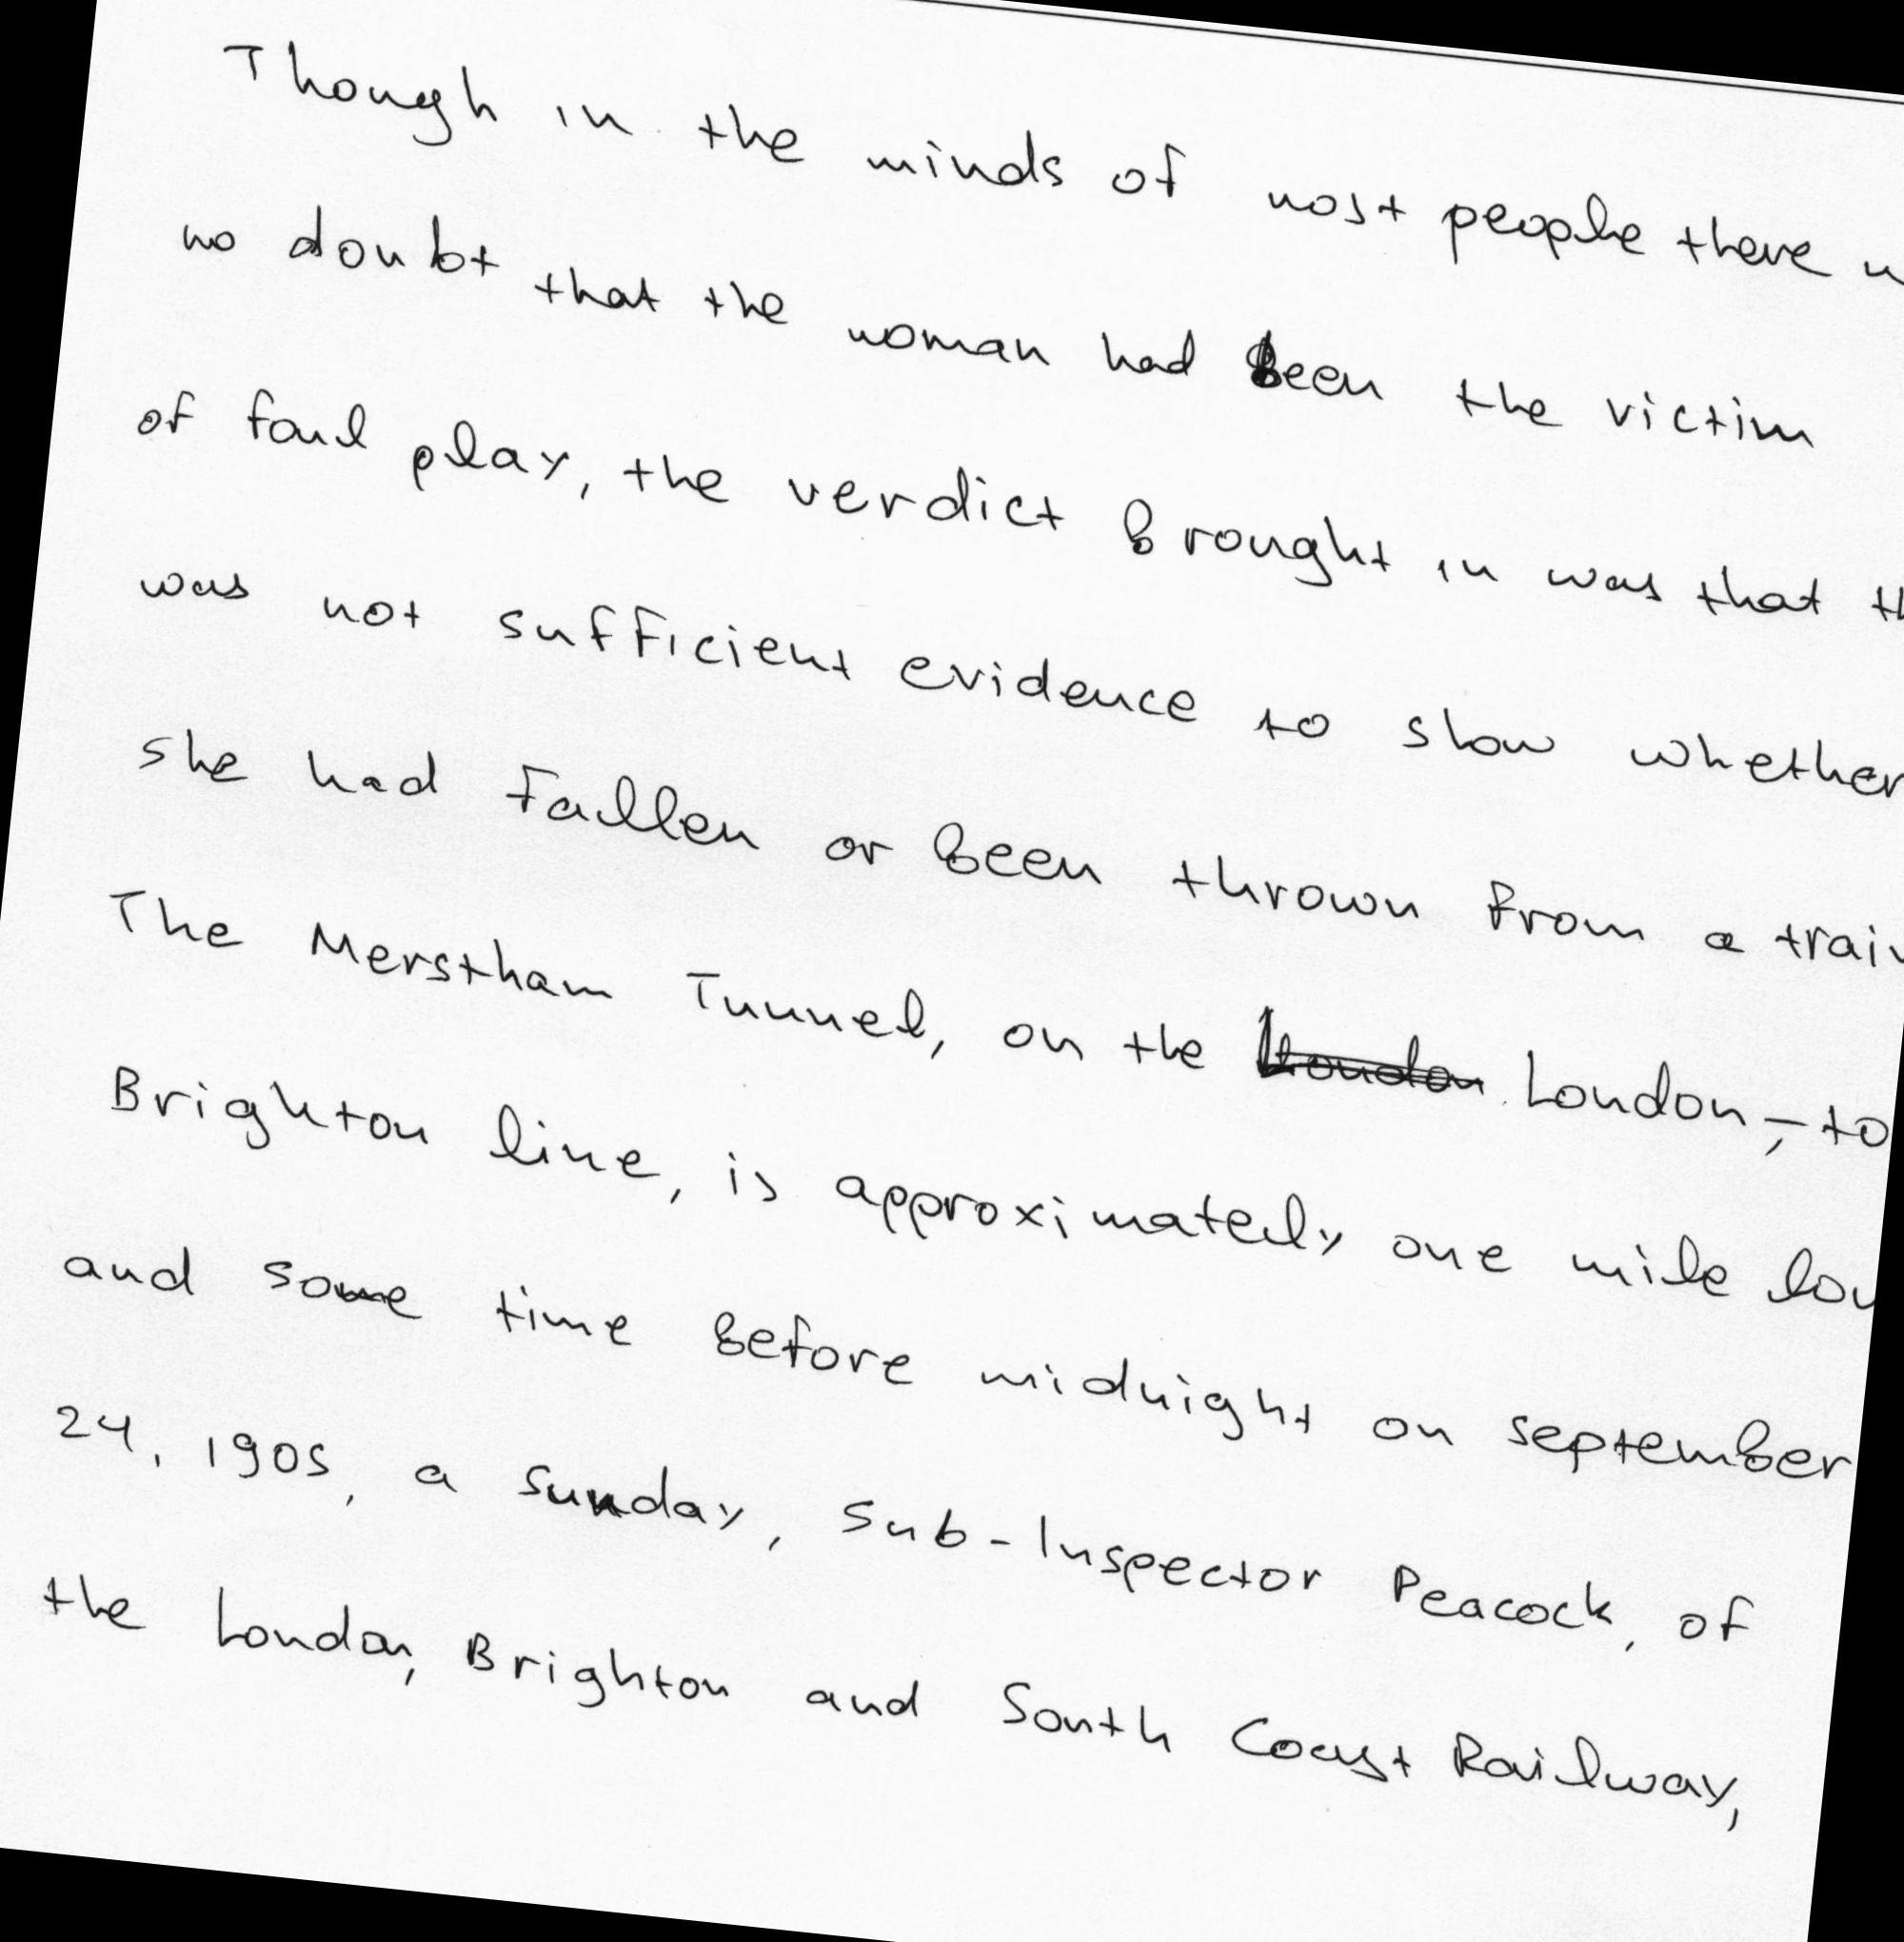 Though in the minds of most people there
no doubt that the woman had been the victim
of foul play, the verdict brought in was that
was not sufficient evidence to show whether
she had fallen or been thrown from a train
The Merstham Tunnel, on the London,-to
Brighton line, is approximately one mile
and some time before midnight on september
24, 1905, a sunday, Sub-Inspector Peacock, of
the London, Brighton and South Coast Railway,